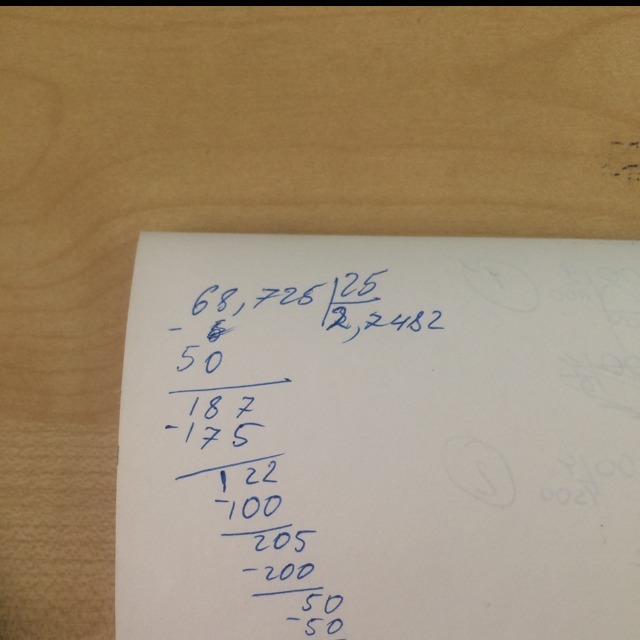 68,725 | 25
- 2,7482
50
187
-175
122
-100
205
-200
50
-50